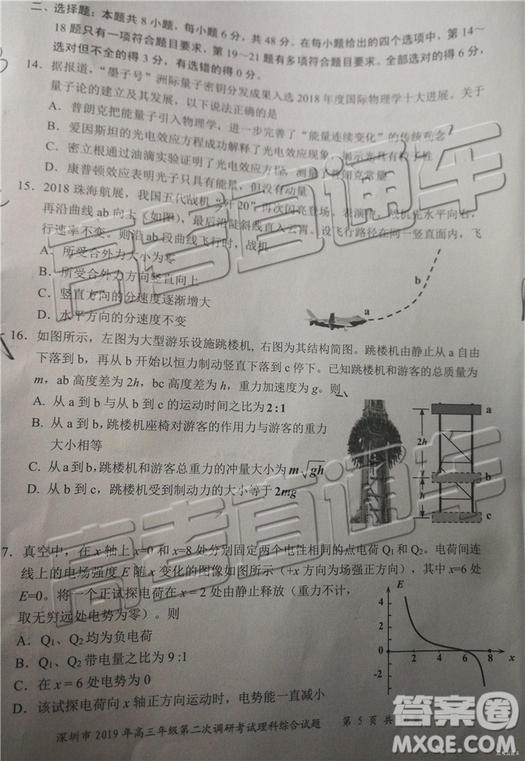 二、选择题：本题共 8 小题，每小题 6 分，共 48 分。在每小题给出的四个选项中，第 14～
18 题只有一项符合题目要求，第 19～21 题有多项符合题目要求。全部选对的得 6 分，
选对但不全的得 3 分，有选错的得 0 分。
14. 据报道，“墨子号”洲际量子密钥分发成果入选 2018 年度国际物理学十大进展。关于
量子论的建立及其发展，以下说法正确的是
A．普朗克把能量子引入物理学，进一步完善了“能量连续变化”的传统观念
B．爱因斯坦的光电效应方程成功解释了光电效应现象，揭示光具有粒子性
C．密立根通过油滴实验证明了光电效应方程，测量
D．康普顿效应表明光子只具有能量，但没有动量
15. 2018 珠海航展，我国五代战机“歼 20”再次闪亮登场。表演中，战机先水平向右，
再沿曲线 ab 向上（如图），最后沿陡斜线直入云霄。设飞行路径在同一竖直面内，飞
行速率不变。则沿 ab 段曲线飞行时，战机
A．所受合外力大小为零
B．所受合外力方向竖直向上
C．竖直方向的分速度逐渐增大
D．水平方向的分速度不变
b
a
16. 如图所示，左图为大型游乐设施跳楼机，右图为其结构简图。跳楼机由静止从 a 自由
下落到 b，再从 b 开始以恒力制动竖直下落到 c 停下。已知跳楼机和游客的总质量为
m，ab 高度差为 2h，bc 高度差为 h，重力加速度为 g。则
A．从 a 到 b 与从 b 到 c 的运动时间之比为 2：1
B．从 a 到 b，跳楼机座椅对游客的作用力与游客的重力
大小相等
C．从 a 到 b，跳楼机和游客总重力的冲量大小为 m√gh
D．从 b 到 c，跳楼机受到制动力的大小等于 2mg
a
2h
b
h
c
7. 真空中，在 x 轴上 x=0 和 x=8 处分别固定两个电性相同的点电荷 Q1 和 Q2。电荷间连
线上的电场强度 E 随 x 变化的图像如图所示（+x 方向为场强正方向），其中 x=6 处
E=0。将一个正试探电荷在 x = 2 处由静止释放（重力不计，
取无穷远处电势为零）。则
A．Q1、Q2 均为负电荷
B．Q1、Q2 带电量之比为 9 :1
C．在 x = 6 处电势为 0
D．该试探电荷向 x 轴正方向运动时，电势能一直减小
E
4
2
0
-2
2 4 6 8 x
深圳市 2019 年高三年级第二次调研考试理科综合试题 第 5 页 共
高考直通车
高考直通车
答案圈